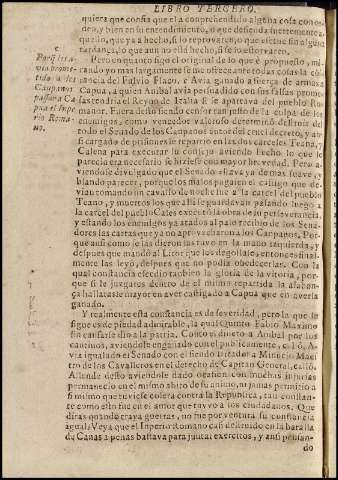 LIBRO TERCERO.
quiera que confia que el a comprehendido alguna cosa con
do, y bien en su entendimiento, o que defienda
quello, que ya a hecho, si lo reprovaren, o que efetue sin alguna
tardança, lo que aun no està hecho, si se lo estorvaren.
Pero en quanto sigo el original de lo que è propuesto, mi
rando yo mas largamente se me ofrece ante todas cosas la cõs
tancia de Fulvio Flaco. E Avia ganado a fuerça de armas a
Capua, a quien Anibal avia persuadido con sus falsas prome
sas tendria el Reyno de Italia si se apartava del pueblo Ro
mano. Fuera desto siendo censor tan justo de la culpa de los
enemigos, como vencedor valeroso determinò destruir del
todo el Senado de los Capuanos autor del cruel decreto, y an
si cargado de prisiones le repartio en las dos carceles Teana, y
Calena para executar su consejo aviendo hecho lo que le
parecia era necesario se hiziese con mayor brevedad. Pero a
viendose divulgado que el Senado estava ya de mas suave, y
blando parecer, porque los malos pagasen el castigo que de-
vian tomando un cavallo de noche fue a la carcel del pueblo
Teano, y muertos los que alli se guardavan pasando luego a
la carcel del pueblo Cales executò la obra de su perseverancia,
y estando los enemigos ya atados al palo recibio de los Sena
dores las cartas que ya no aprovecharon a los Capuanos. Por
que ansi como se las dieron las tuvo en la mano izquierda, y
despues que mandò al Litor que los degollase, entonces final-
mente las leyò, despues que no podia obedecerlas. Con la
qual constancia ecedio tambien la gloria de la vitoria, por-
que si le juzgares dentro de si mismo repartida la alaban-
ça hallaras se mayor en aver castigado a Capua que en averla
ganado.
Y realmente esta constancia es de severidad, pero la que se
sigue es de piedad admirable, la qual Quinto Fabio Maximo
sin cansarse dio a la patria. Conto el dinero a Anibal por los
cautivos, aviendole engañado con el publicamente, callò. A
via igualado el Senado con el siendo Ditador a Minucio Maes
tro de los Cavalleros en el derecho de Capitan General, callò.
Allende desto aviendole dado ocasion con muchas injurias
permanecio en el mismo abito de su animo, ni jamas primitio a
si mismo que tuviese colera contra la Republica, tan constan-
te como esto fue en el amor que tuvo a los ciudadanos. Que
diras quando traya guerras, no fue por ventura su constancia
igual: Veya que el Inperio Romano casi destruido en la batalla
de Canas apenas bastava para juntar exercitos, y ansi pensan-
do